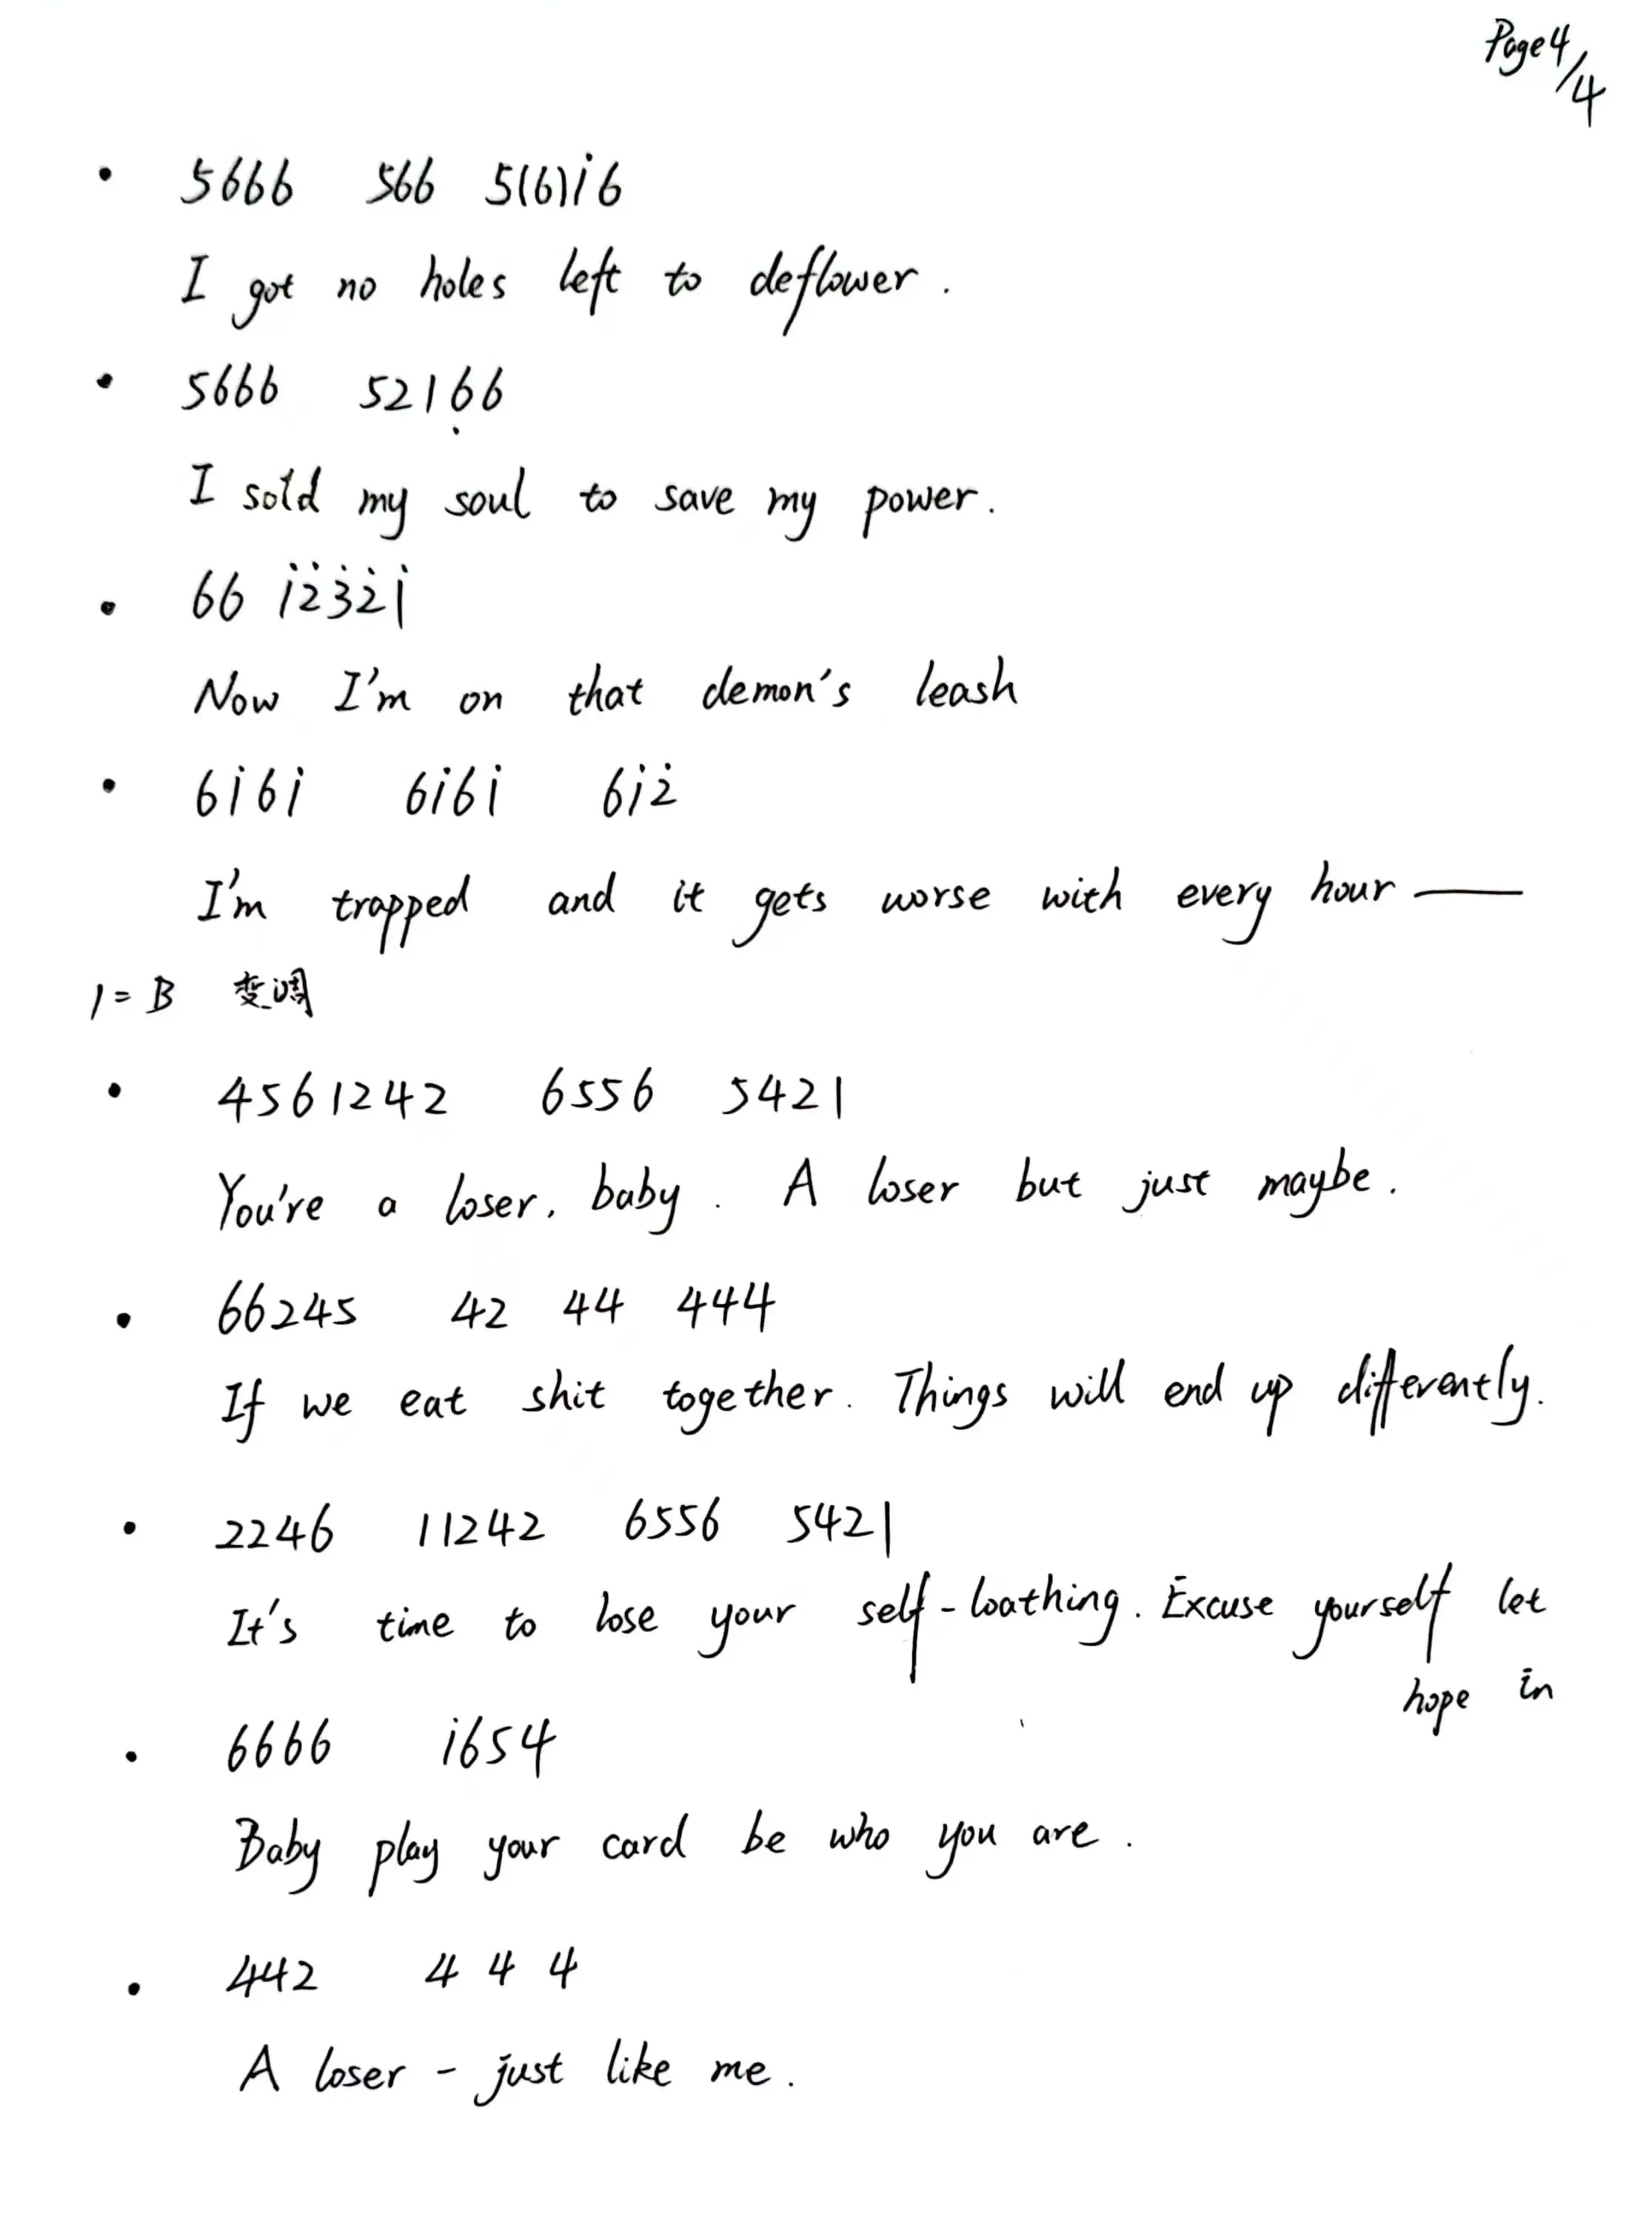 Page 4/4
• 5666 566 5(6)i̇6
I got no holes left to deflower.
• 5666 5216̣6
I sold my soul to save my power.
• 66 i̇2̇3̇2̇i̇
Now I'm on that demon's leash
• 6i̇6i̇ 6i̇6i̇ 6i̇2̇
I'm trapped and it gets worse with every hour —
1=B 变调
• 4561242 6556 5421
You're a loser, baby. A loser but just maybe.
• 66245 42 44 444
If we eat shit together. Things will end up differently.
• 2246 11242 6556 5421
It's time to lose your self-loathing. Excuse yourself let
hope in
• 6666 i̇654
Baby play your card be who you are.
• 442 4 4 4
A loser - just like me.